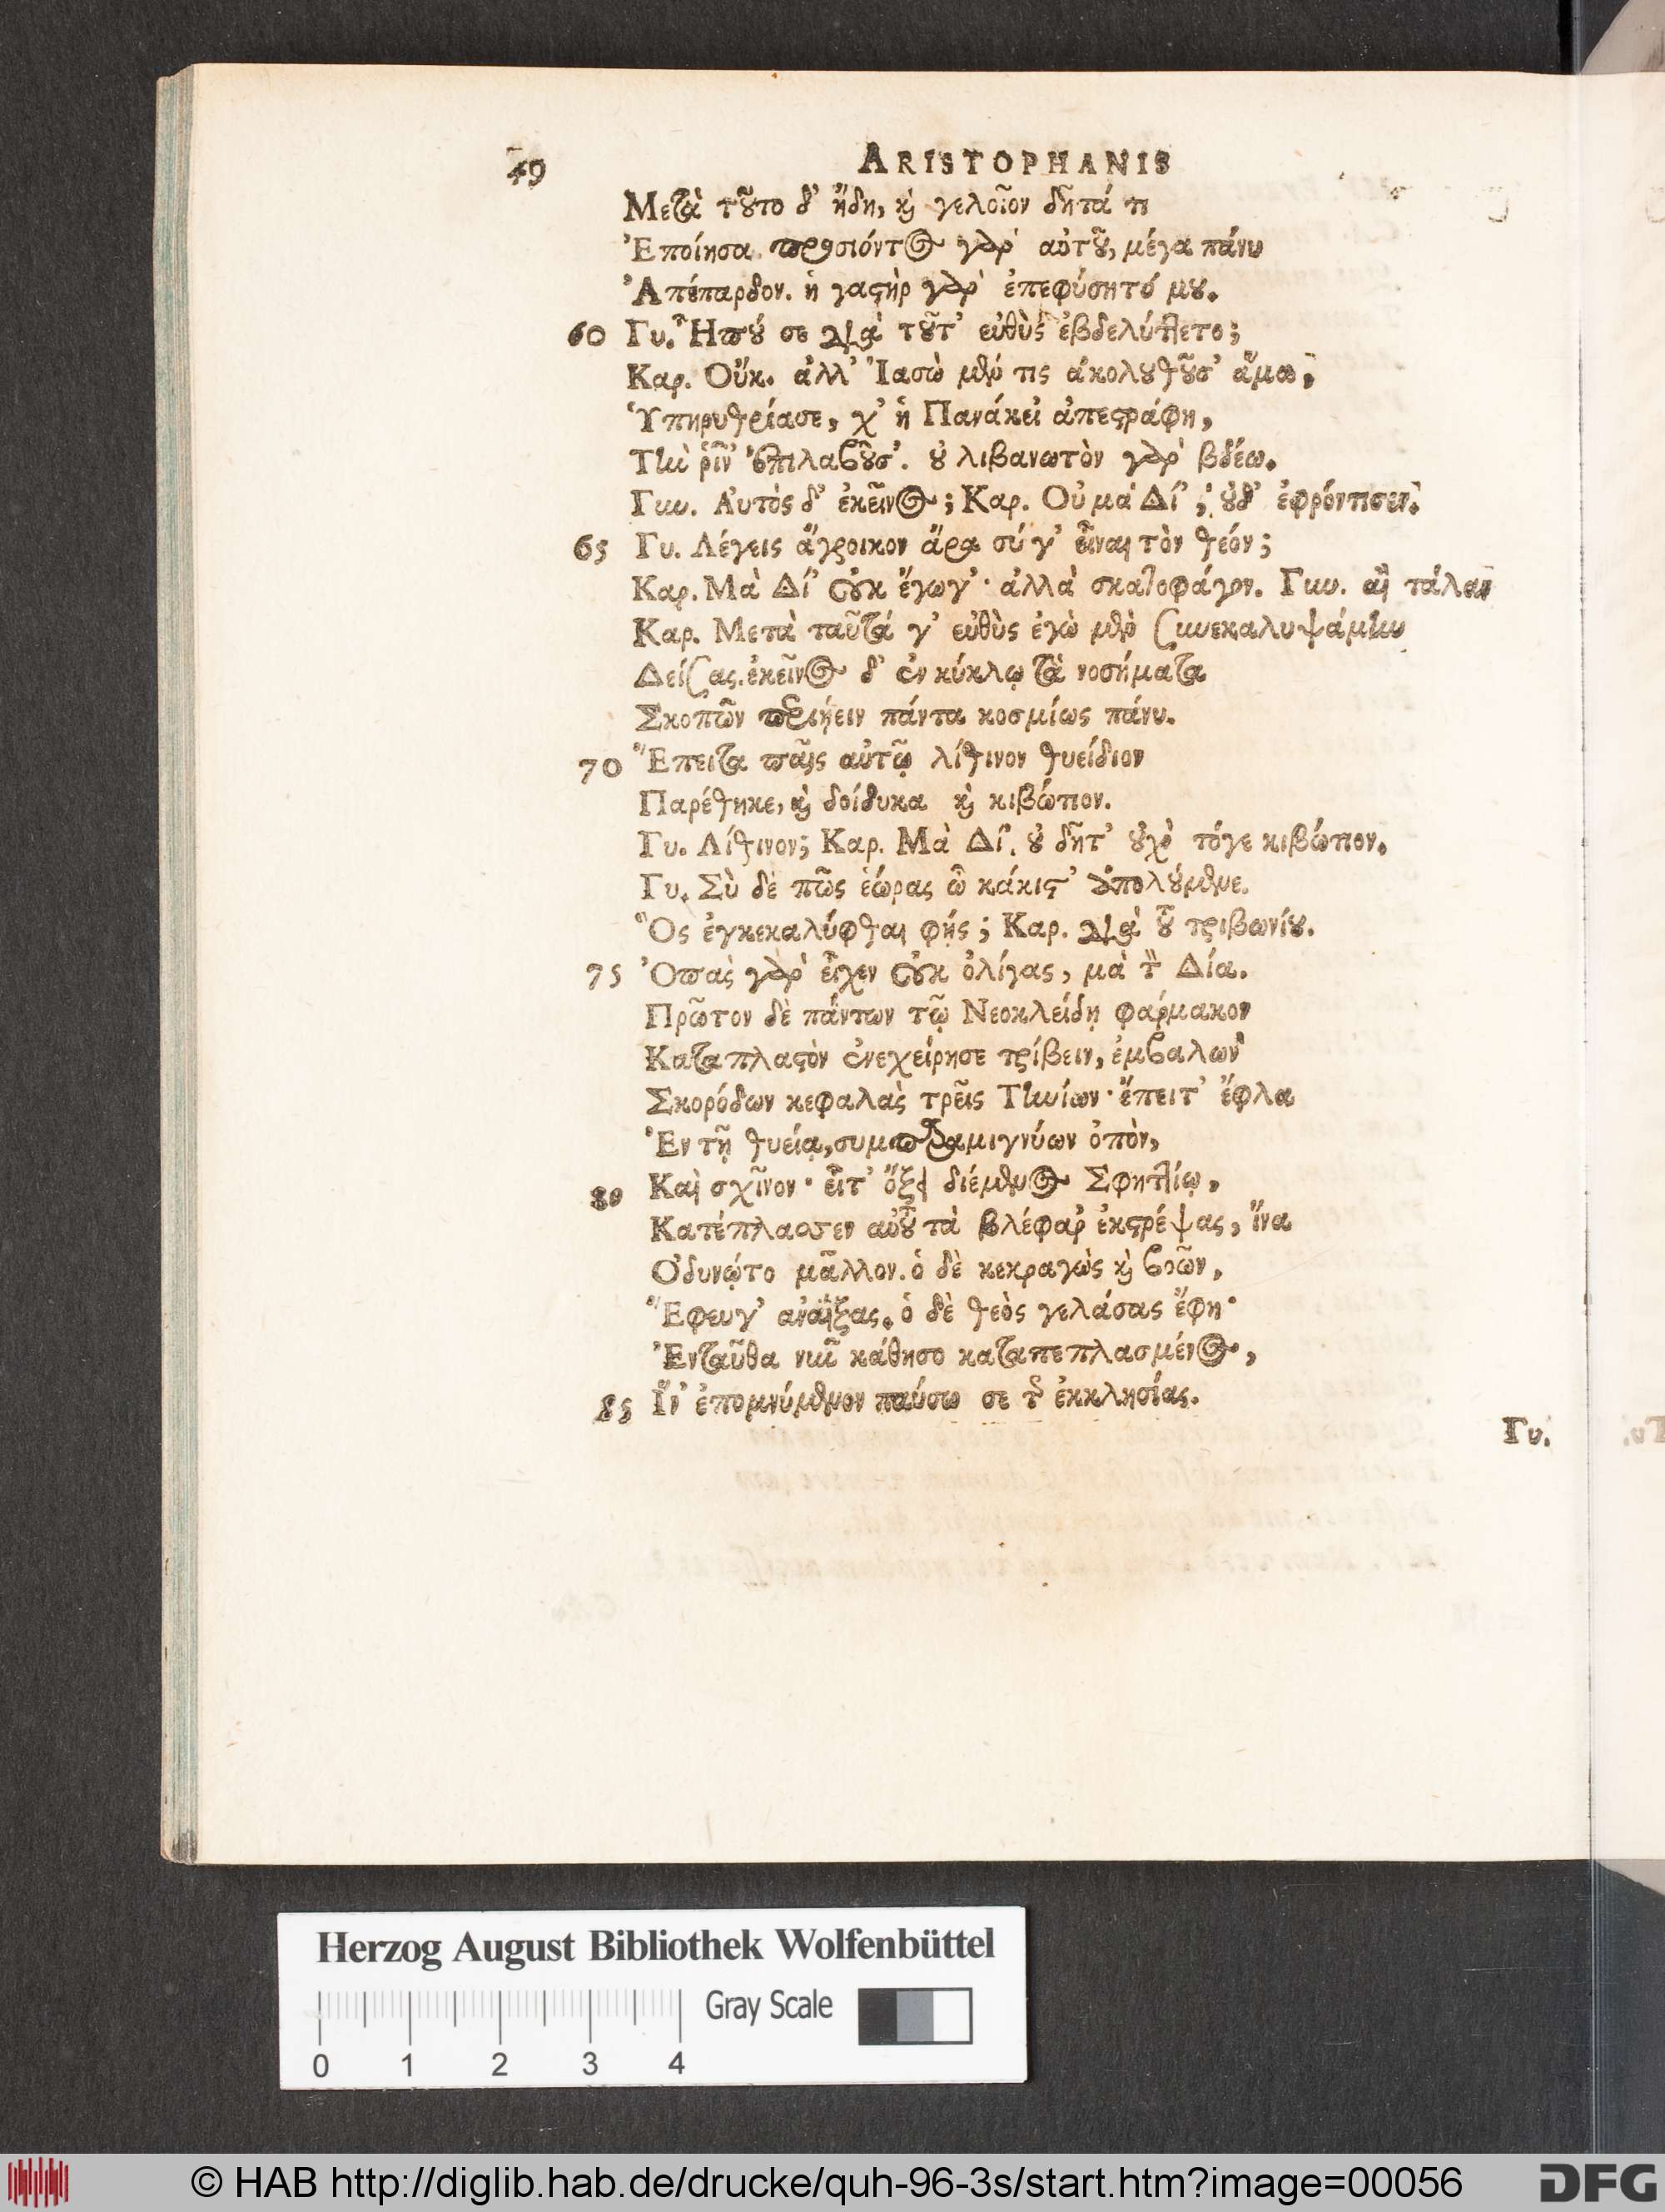 49 ARISTOPHANIS
Μετὰ τοῦτο δ' ἤδη, καὶ γελοῖον δῆτά τι
Ἐποίησα. προσιόντος γὰρ αὐτοῦ, μέγα πάνυ
Ἀπέπαρδον. ἡ γαστὴρ γὰρ ἐπεφύσητό μου.
60 Γυ. Ἦπού σε διὰ τοῦτ' εὐθὺς ἐβδελύττετο;
Καρ. Οὔκ. ἀλλ' Ἰασὼ μέν τις ἀκολουθοῦσ' ἅμα,
Ὑπηρυθρίασε, χ' ἡ Πανάκει ἀπεστράφη,
Τὴν ῥῖν' ἐπιλαβοῦσ'. οὐ λιβανωτὸν γὰρ βδέω.
Γυν. Αὐτὸς δ' ἐκεῖνος; Καρ. Οὐ μὰ Δί', οὐδ' ἐφρόντισεν.
65 Γυ. Λέγεις ἄγροικον ἄρα σύ γ' εἶναι τὸν θεόν;
Καρ. Μὰ Δί' οὐκ ἔγωγ'· ἀλλὰ σκατοφάγον. Γυν. αἲ τάλαν
Καρ. Μετὰ ταῦτά γ' εὐθὺς ἐγὼ μὲν συνεκαλυψάμην
Δείσας. ἐκεῖνος δ' ἐν κύκλῳ τὰ νοσήματα
Σκοπῶν περιῄειν πάντα κοσμίως πάνυ.
70 Ἔπειτα παῖς αὐτῷ λίθινον θυείδιον
Παρέθηκε, καὶ δοίδυκα καὶ κιβώτιον.
Γυ. Λίθινον; Καρ. Μὰ Δί'. οὐ δῆτ' οὐχὶ τόγε κιβώτιον.
Γυ. Σὺ δὲ πῶς ἑώρας ὦ κάκιστ' ἀπολούμενε.
Ὃς ἐγκεκαλύφθαι φής; Καρ. διὰ τοῦ τριβωνίου.
75 Ὀπὰς γὰρ εἶχεν οὐκ ὀλίγας, μὰ τὸν Δία.
Πρῶτον δὲ πάντων τῷ Νεοκλείδῃ φάρμακον
Καταπλαστὸν ἐνεχείρησε τρίβειν, ἐμβαλων
Σκορόδων κεφαλὰς τρεῖς Τηνίων· ἔπειτ' ἔφλα
Ἐν τῇ θυείᾳ, συμπαραμιγνύων ὀπὸν,
80 Καὶ σχῖνον· εἶτ' ὄξει διέμενος Σφηττίῳ,
Κατέπλασεν αὐτοῦ τὰ βλέφαρ' ἐκστρέψας, ἵνα
Ὀδυνῷτο μᾶλλον. ὁ δὲ κεκραγὼς καὶ βοῶν,
Ἔφευγ' ἀναΐξας. ὁ δὲ θεὸς γελάσας ἔφη·
Ἐνταῦθα νῦν κάθησο καταπεπλασμένος,
85 Ἵν' ἐπομνύμενον παύσω σε τῆς ἐκκλησίας.
Γυ.
Herzog August Bibliothek Wolfenbüttel
Gray Scale
0 1 2 3 4
© HAB http://diglib.hab.de/drucke/quh-96-3s/start.htm?image=00056
DFG